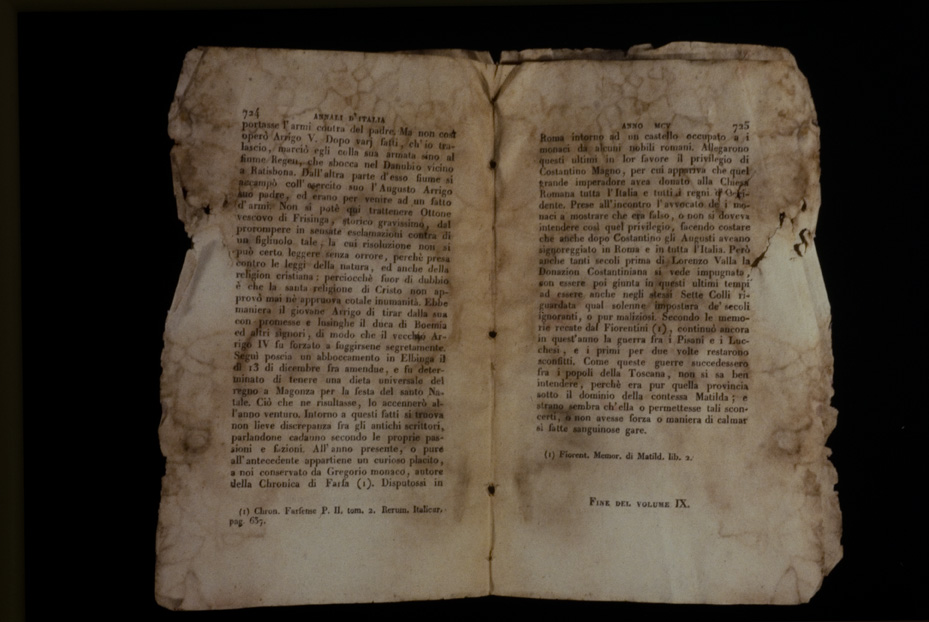 724 ANNALI D'ITALIA
portasse l'armi contra del padre. Ma non così
operò Arrigo V. Dopo varj fatti, ch'io tra-
lascio, marciò egli colla sua armata sino al
fiume Regen, che sbocca nel Danubio vicino
a Ratisbona. Dall'altra parte d'esso fiume si
accampò coll'esercito suo l'Augusto Arrigo
suo padre, ed erano per venire ad un fatto
d'armi. Non si potè qui trattenere Ottone
vescovo di Frisinga, storico gravissimo, dal
prorompere in sensate esclamazioni contra di
un figliuolo tale, la cui risoluzione non si
può certo leggere senza orrore, perchè presa
contro le leggi della natura, ed anche della
religion cristiana; perciocchè fuor di dubbio
è che la santa religione di Cristo non ap-
provò mai nè appruova cotale inumanità. Ebbe
maniera il giovane Arrigo di tirar dalla sua
con promesse e lusinghe il duca di Boemia
ed altri signori, di modo che il vecchio Ar-
rigo IV fu forzato a fuggirsene segretamente.
Seguì poscia un abboccamento in Elbinga il
dì 13 di dicembre fra amendue, e fu deter-
minato di tenere una dieta universale del
regno a Magonza per la festa del santo Na-
tale. Ciò che ne risultasse, lo accennerò al-
l'anno venturo. Intorno a questi fatti si truova
non lieve discrepanza fra gli antichi scrittori,
parlandone cadauno secondo le proprie pas-
sioni e fazioni. All'anno presente, o pure
all'antecedente appartiene un curioso placito,
a noi conservato da Gregorio monaco, autore
della Chronica di Farfa (1). Disputossi in
(1) Chron. Farfense P. II. tom. 2. Rerum. Italicar.
pag. 637.
ANNO MCV 725
Roma intorno ad un castello occupato a i
monaci da alcuni nobili romani. Allegarono
questi ultimi in lor favore il privilegio di
Costantino Magno, per cui appariva che quel
grande imperadore avea donato alla Chiesa
Romana tutta l'Italia e tutti i regni d'Occi-
dente. Prese all'incontro l'avvocato de i mo-
naci a mostrare che era falso, o non si doveva
intendere così quel privilegio, facendo costare
che anche dopo Costantino gli Augusti aveano
signoreggiato in Roma e in tutta l'Italia. Però
anche tanti secoli prima di Lorenzo Valla la
Donazion Costantiniana si vede impugnata,
non essere poi giunta in questi ultimi tempi
ad essere anche negli stessi Sette Colli ri-
guardata qual solenne impostura de' secoli
ignoranti, o pur maliziosi. Secondo le memo-
rie recate dal Fiorentini (1), continuò ancora
in quest'anno la guerra fra i Pisani e i Luc-
chesi, e i primi per due volte restarono
sconfitti. Come queste guerre succedessero
fra i popoli della Toscana, non si sa ben
intendere, perchè era pur quella provincia
sotto il dominio della contessa Matilda; e
strano sembra ch'ella o permettesse tali scon-
certi, o non avesse forza o maniera di calmar
sì fatte sanguinose gare.
(1) Fiorent. Memor. di Matild. lib. 2.
FINE DEL VOLUME IX.